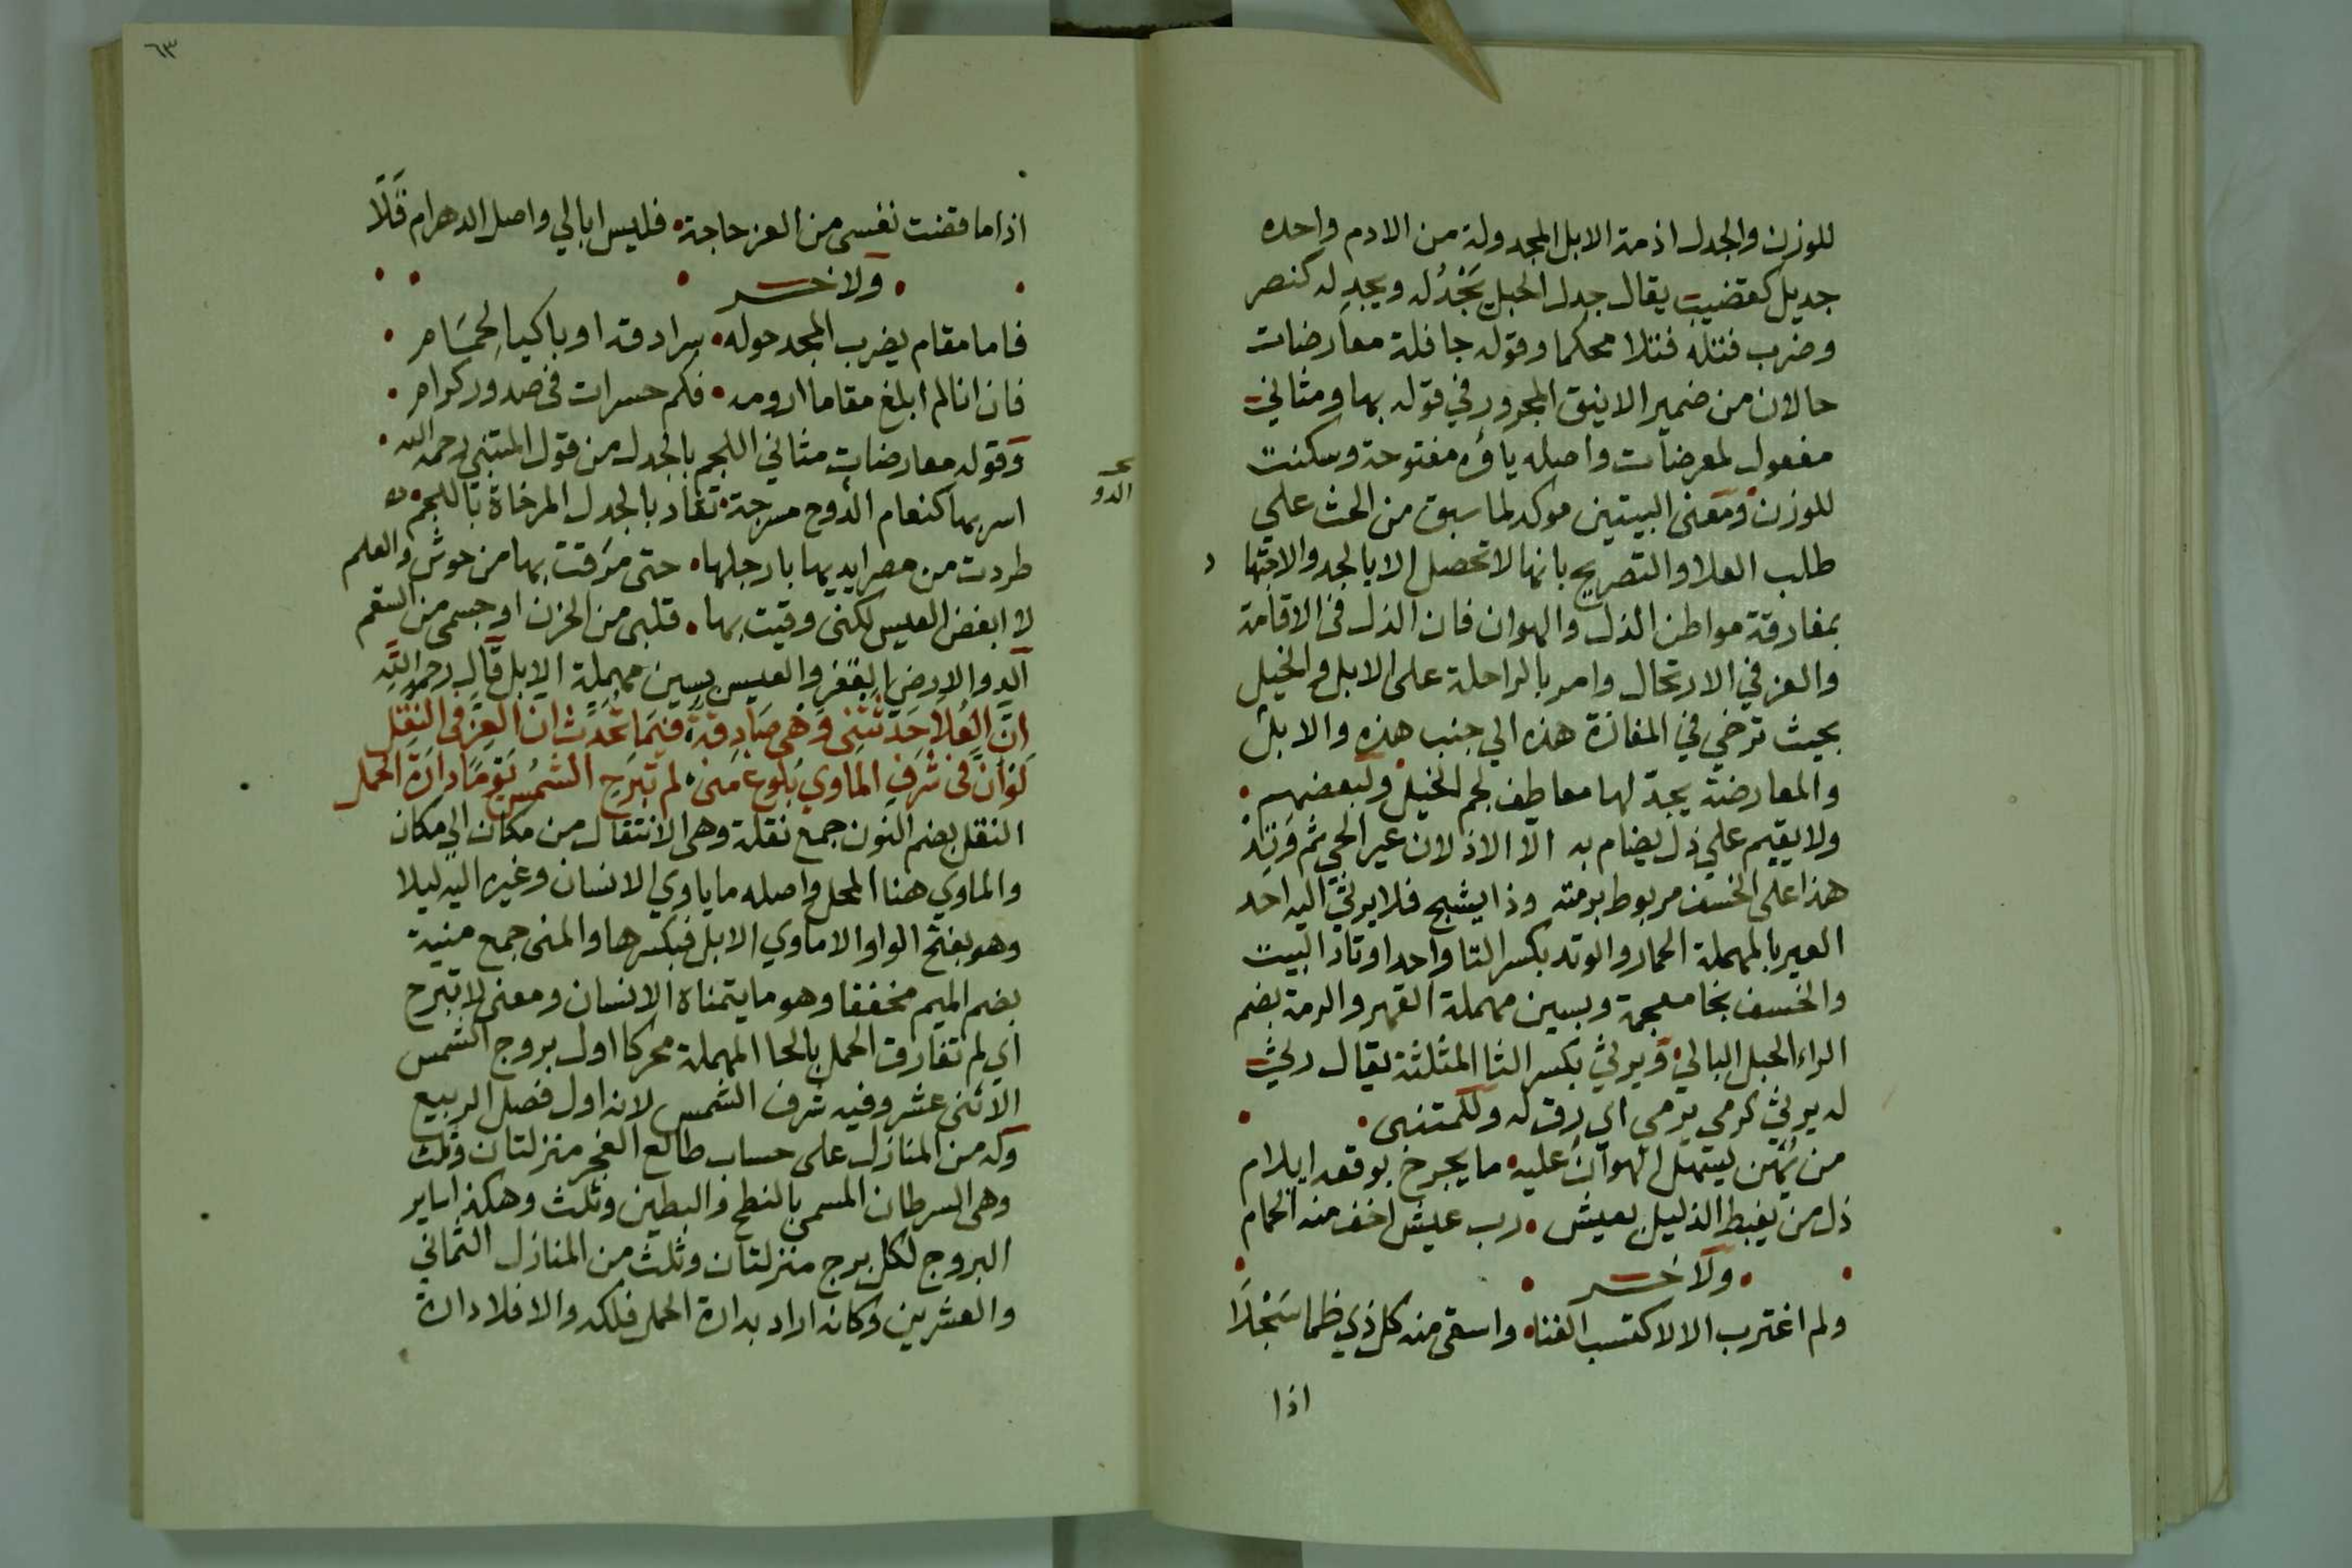 للوزن والجدل اذمة الابل المجدولة من الادم واحده
جديل كقضيب يقال جدل الحبل يَجْدُله ويجدِله كنصر
وضرب فتله فتلا محكما وقوله جافلة معارضات
حالان من ضمير الاينق المجرور في قوله بها ومثاني
مفعول لمعرضات واصله ياؤه مفتوحة وسكنت
للوزن ومعنى البيتين موكد لما سبق من الحث علي
طلب العلا والتصريح بانها لا تحصل الا بالجد والاجتها د
بمفارقة مواطن الذل والهوان فان الذل في الاقامة
والعز في الارتحال وامر بالراحلة على الابل والخيل
بحيث ترخي في المفازة هذه الي جنب هذه والابل
والمعارضة يجدّ لها معاطف لجم الخيل ولبعضهم
ولا يقيم علي ذل يضام به الا الاذلان عير الحي ثم وَتِدُ
هذا على الخسف مربوط برمته وذا يشج فلا يرثي اليه احد
العير بالمهملة الحمار والوتد بكسر التا واحد اوتاد البيت
والخسف بخا معجمة وبسين مهملة القهر والرمة بضم
الراء الحبل البالي ويرثي بكسر الثا المثلثة يقال رثي
له يرثي كرمي يرمي اي رق له وللمتنبي
من يُهَن يسهل الهوانُ عليه ما يجرح بوقعه ايلام
ذل من يغبط الذليل بعيش رب عيش اخف منه الحمام
ولاخر
ولم اغترب الا لاكتسب الغنا واسقى منه كل ذي ظما سَجْلًا
اذا
٦٣
اذا ما قضت نفسي من العز حاجة فليس ابالي واصل الدهر ام قَلَا
ولاخر
فاما مقام يضرب المجد حوله سرادقه او باكيا لحِمَام
فان انا لم ابلغ مقاما ارومه فكم حسرات في صدور كرام
وقوله معارضات مثاني اللجم بالجدل من قول المتنبي رحمه الله
اسر بها كنعام الدوح مسرجة تقاد بالجدل المرخاة باللجم
الدو
طردت من مصر ايديها بارجلها حتى مرقت بها من حوش والعلم
لا ابغض العيس لكني وقيت بها قلبي من الحزن او جسمي من السقم
الدو الارض القفر والعيس بسين مهملة الابل قال رحمه الله
اِنَّ العُلا حَدّثَتْنِي وَهْي صَادِقَةٌ فيَما تُحَدّث ان العِزّ في النُقَل
لَوْ اَنَّ فِي شَرَفِ المَاوي بُلوغَ مُنى لم تبرَح الشمْسُ يَومًا دارَةَ الحمل
النقل بضم النون جمع نقلة وهي الانتقال من مكان الي مكان
والماوي هنا المحل واصله ما ياوي الانسان وغيره اليه ليلا
وهو بفتح الواو الا ماوي الابل فبكسرها والمنى جمع منية
بضم الميم مخففا وهو ما يتمناه الانسان ومعنى لا تبرح
اي لم تفارق الحمل بالحا المهملة محركا اول بروج الشمس
الاثني عشر وفيه شرف الشمس لانه اول فصل الربيع
وله من المنازل على حساب طالع الفجر منزلتان وثلث
وهي السرطان المسمى بالنطح والبطين وثلث وهكذا ساير
البروج لكل برج منزلتان وثلث من المنازل الثماني
والعشرين وكانه اراد بدارة الحمل فلكه والا فلا دارة